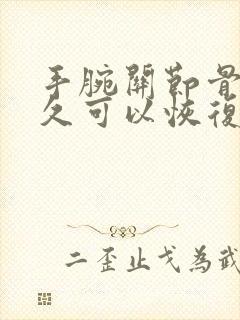 手腕關節骨
久可以恢復
二歪止戈為武